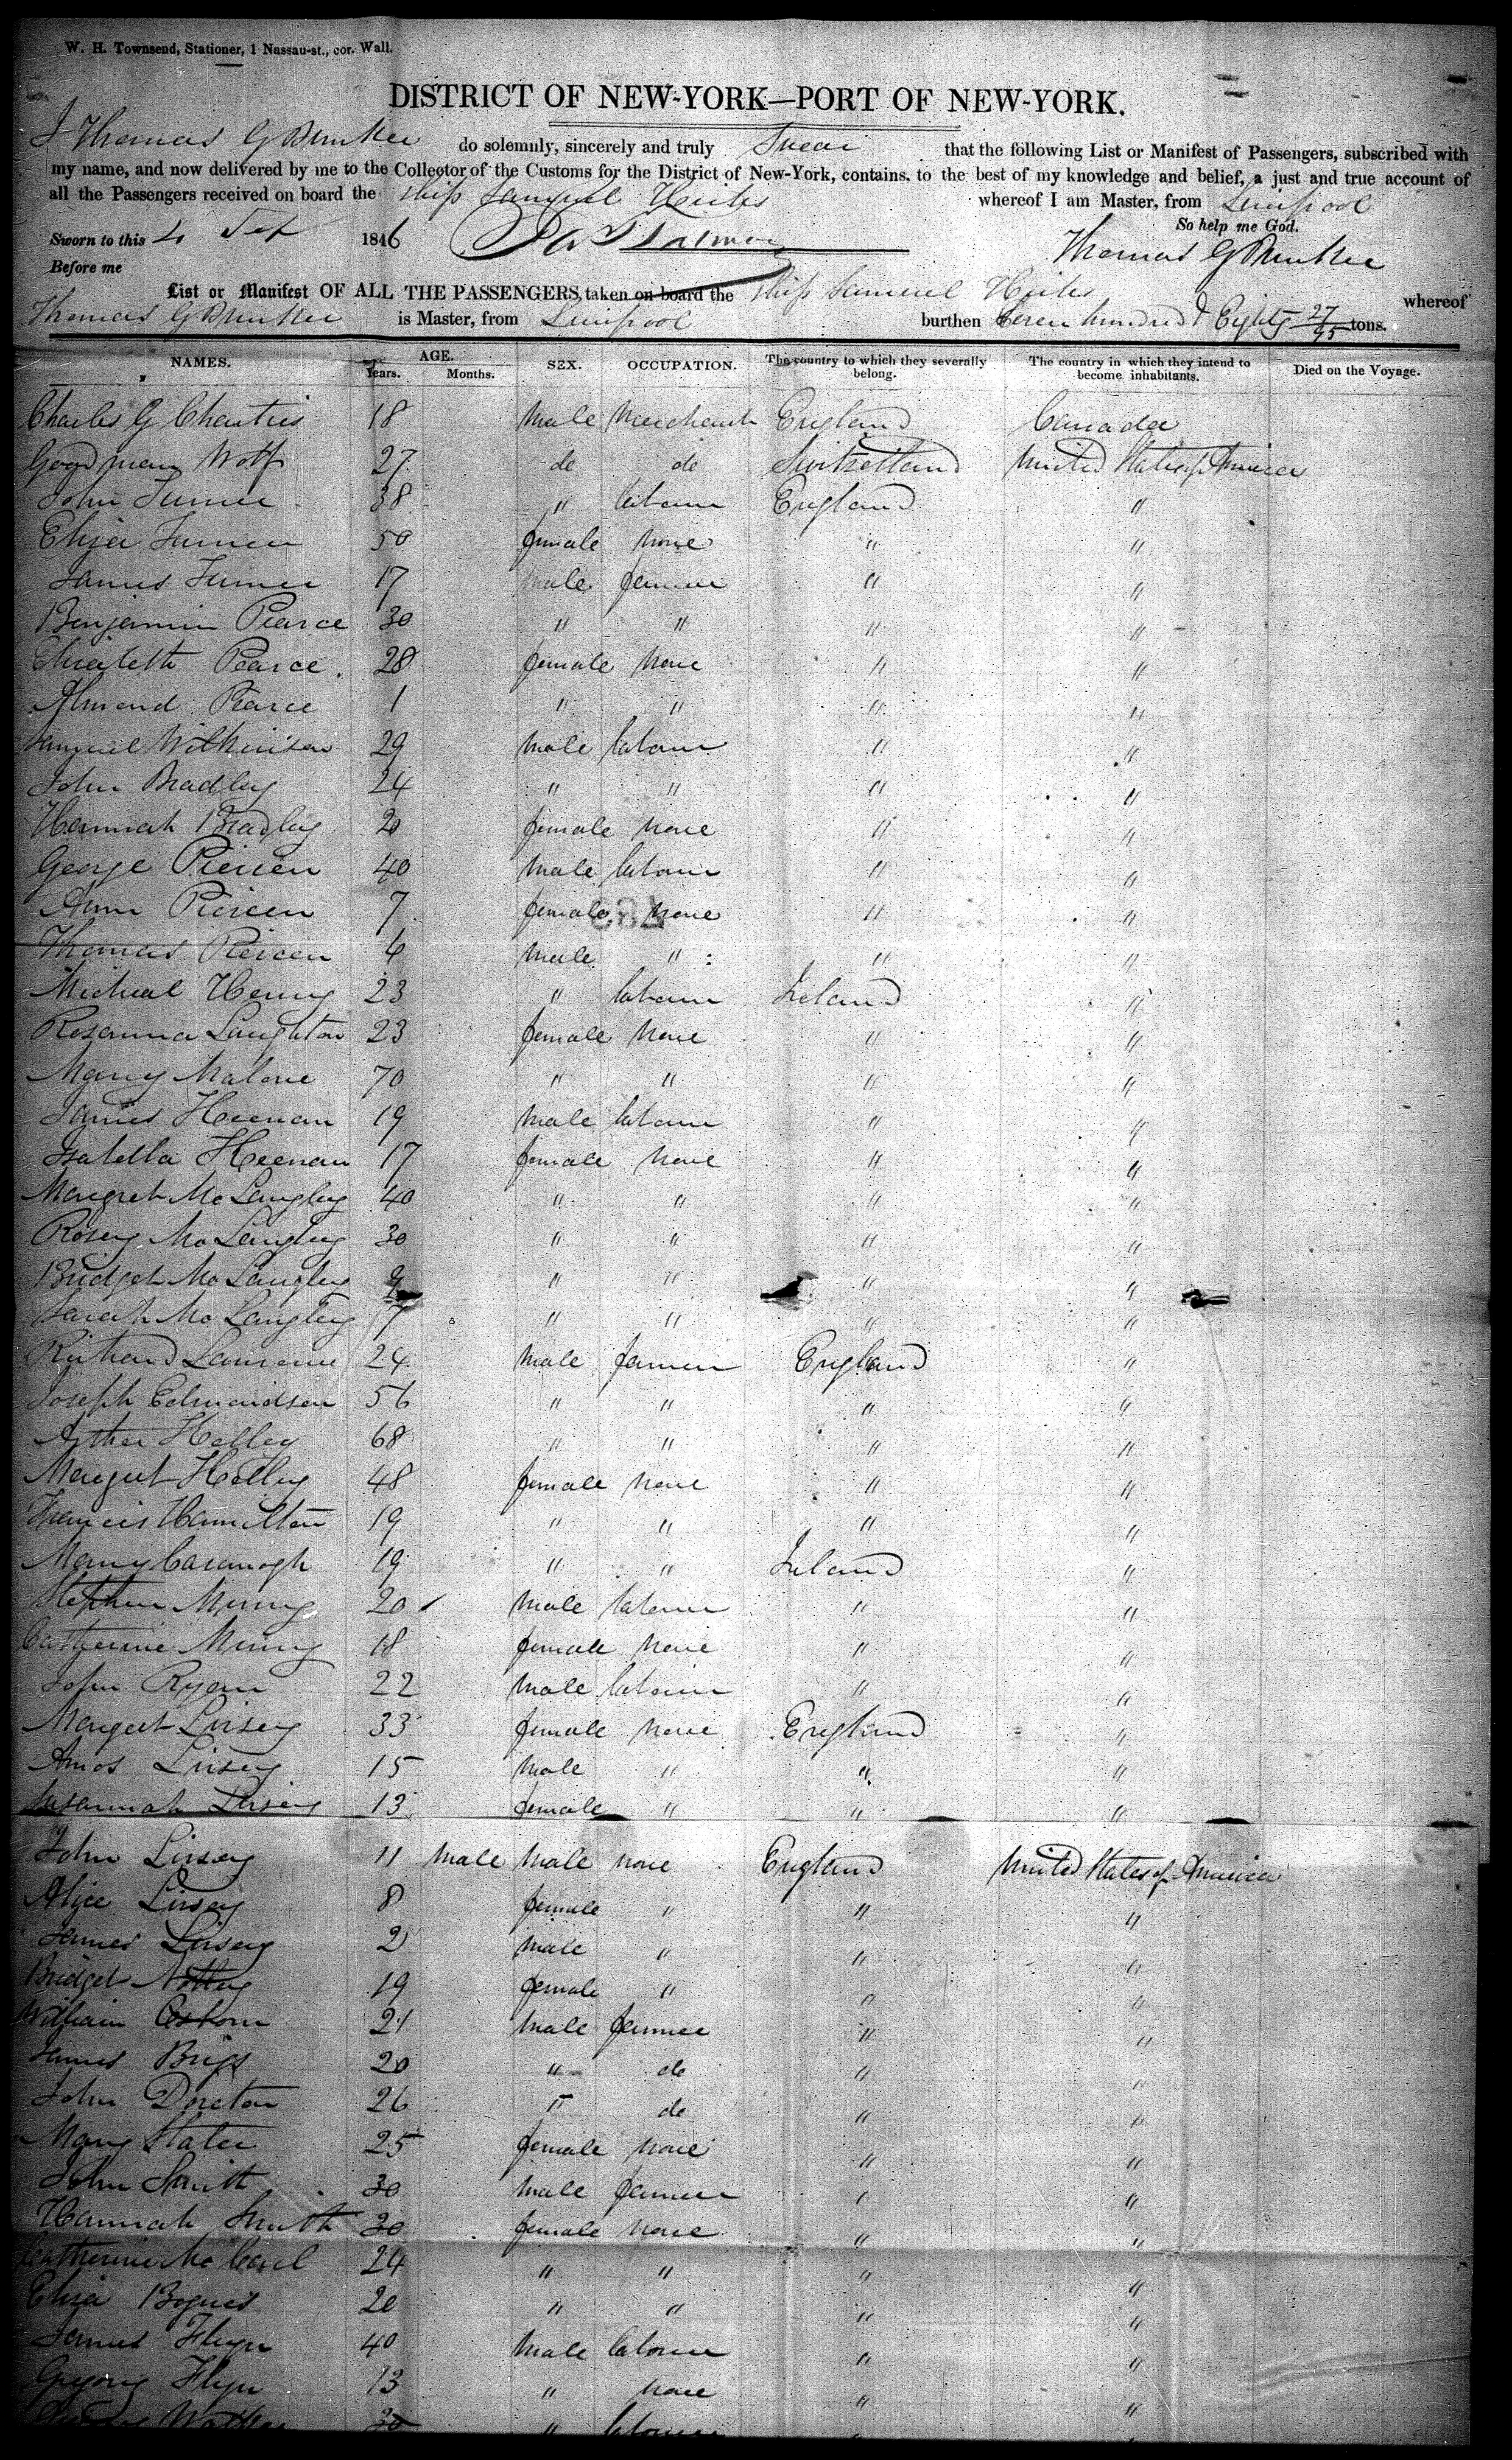 W. H. Townsend, Stationer, 1 Nassau-st., cor. Wall.
DISTRICT OF NEW-YORK—PORT OF NEW-YORK.
I Thomas G Bunker do solemnly, sincerely and truly Swear that the following List or Manifest of Passengers, subscribed with
my name, and now delivered by me to the Collector of the Customs for the District of New-York, contains, to the best of my knowledge and belief, a just and true account of
all the Passengers received on board the Ship Samuel Hicks whereof I am Master, from Liverpool
So help me God.
Sworn to this 4 1846
Thomas G Bunker
Before me
List or Manifest OF ALL THE PASSENGERS taken on board the Ship Samuel Hicks whereof
Thomas G Bunker is Master, from Liverpool burthen Seven hundred & Eighty 27/95 tons.
NAMES. AGE. SEX. OCCUPATION. The country to which they severally belong. The country in which they intend to become inhabitants. Died on the Voyage.
Years. Months.
Charles G 18 Male Merchant England Canada
Goodman Wolf 27 do do Switzetland United States of America
John Turner 38 " labour England "
Eliza Turner 50 female none " "
James Turner 17 male farmer " "
Benjamin Pearce 30 " " " "
Elizabeth Pearce 28 female none " "
Almond Pearce 1 " " " "
Samuel Wilkinson 29 male labour " "
John Bradley 24 " " " "
Hannah Bradley 20 female none " "
George 40 male labour " "
Ann 7 female none " "
Thomas 4 male " " "
Micheal Henry 23 " labour Ireland "
Rosanna Laughton 23 female none " "
Mary Malone 70 " " " "
James Heenan 19 male labour " "
Isabella Heenan 17 female none " "
Margret Mc Langley 40 " " " "
Rosey Mc Langley 30 " " " "
Bridget Mc Langley 9 " " " "
Sarah Mc Langley 7 " " " "
Richard Lawrence 24 male farmer England "
Joseph Edmondson 56 " " " "
Arther Holley 68 " " " "
Margret Holley 48 female none " "
Francis Hamilton 19 " " " "
Mary Cavanogh 19 " " Ireland "
Stephen 20 male labour " "
Catherine 18 female none " "
John Ryan 22 male labour " "
Margret Linsey 33 female none England "
Amos Linsey 15 male " " "
Susannah Linsey 13 female " " "
John Linsey 11 male male none England United States of America
Alice Linsey 8 female " " "
James Linsey 2 male " " "
Bridget 19 female " " "
William Osborn 21 male farmer " "
James Brigs 20 " do " "
John 26 " do " "
Mary Slater 25 female none " "
John Smith 30 male farmer " "
Hannah Smith 30 female none " "
Catherine Mc 24 " " " "
Eliza 20 " " " "
James Flyn 40 male labour " "
Gregory Flyn 13 " none " "
30 " labour "